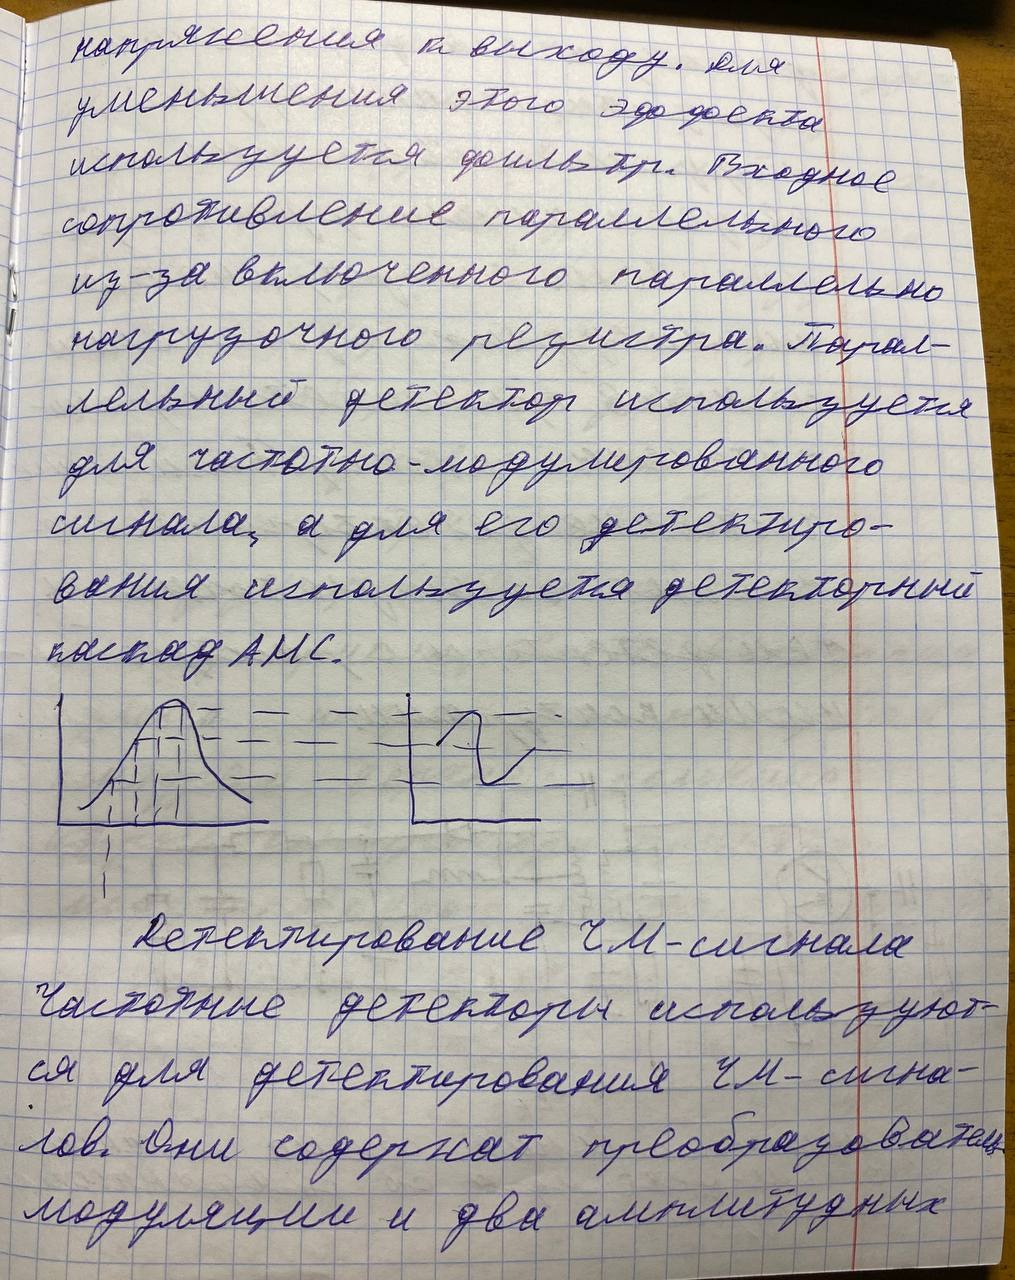 напряжения к выходу. Для
уменьшения этого эффекта
используется фильтр. Входное
сопротивление параллельного
из-за включенного параллельно
нагрузочного резистра. Парал-
лельный детектор используется
для частотно-модулированного
сигнала, а для его детектиро-
вания используется детекторный
каскад АМС.
Детектирование ЧМ-сигнала
Частотные детекторы используют-
ся для детектирования ЧМ-сигна-
лов. Они содержат преобразователь
модуляции и два амплитудных